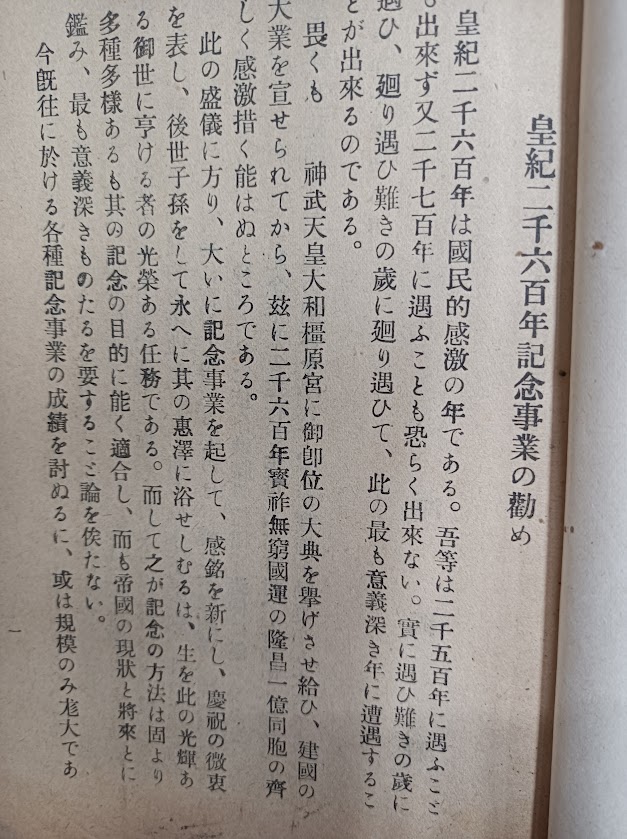 皇紀二千六百年記念事業の勸め
皇紀二千六百年は國民的感激の年である。吾等は二千五百年に遇ふこと
も出來ず又二千七百年に遇ふことも恐らく出來ない。實に遇ひ難きの歲に
遇ひ、廻り遇ひ難きの歲に廻り遇ひて、此の最も意義深き年に遭遇するこ
とが出來るのである。
畏くも　神武天皇大和橿原宮に御卽位の大典を擧げさせ給ひ、建國の
大業を宣せられてから、玆に二千六百年寳祚無窮國運の隆昌一億同胞の齊
しく感激措く能はぬところである。
此の盛儀に方り、大いに記念事業を起して、感銘を新にし、慶祝の微衷
を表し、後世子孫をして永へに其の惠澤に浴せしむるは、生を此の光輝あ
る御世に亨ける者の光榮ある任務である。而して之が記念の方法は固より
多種多樣あるも其の記念の目的に能く適合し、而も帝國の現狀と將來とに
鑑み、最も意義深きものたるを要すること論を俟たない。
今旣往に於ける各種記念事業の成績を討ぬるに、或は規模のみ尨大であ
一